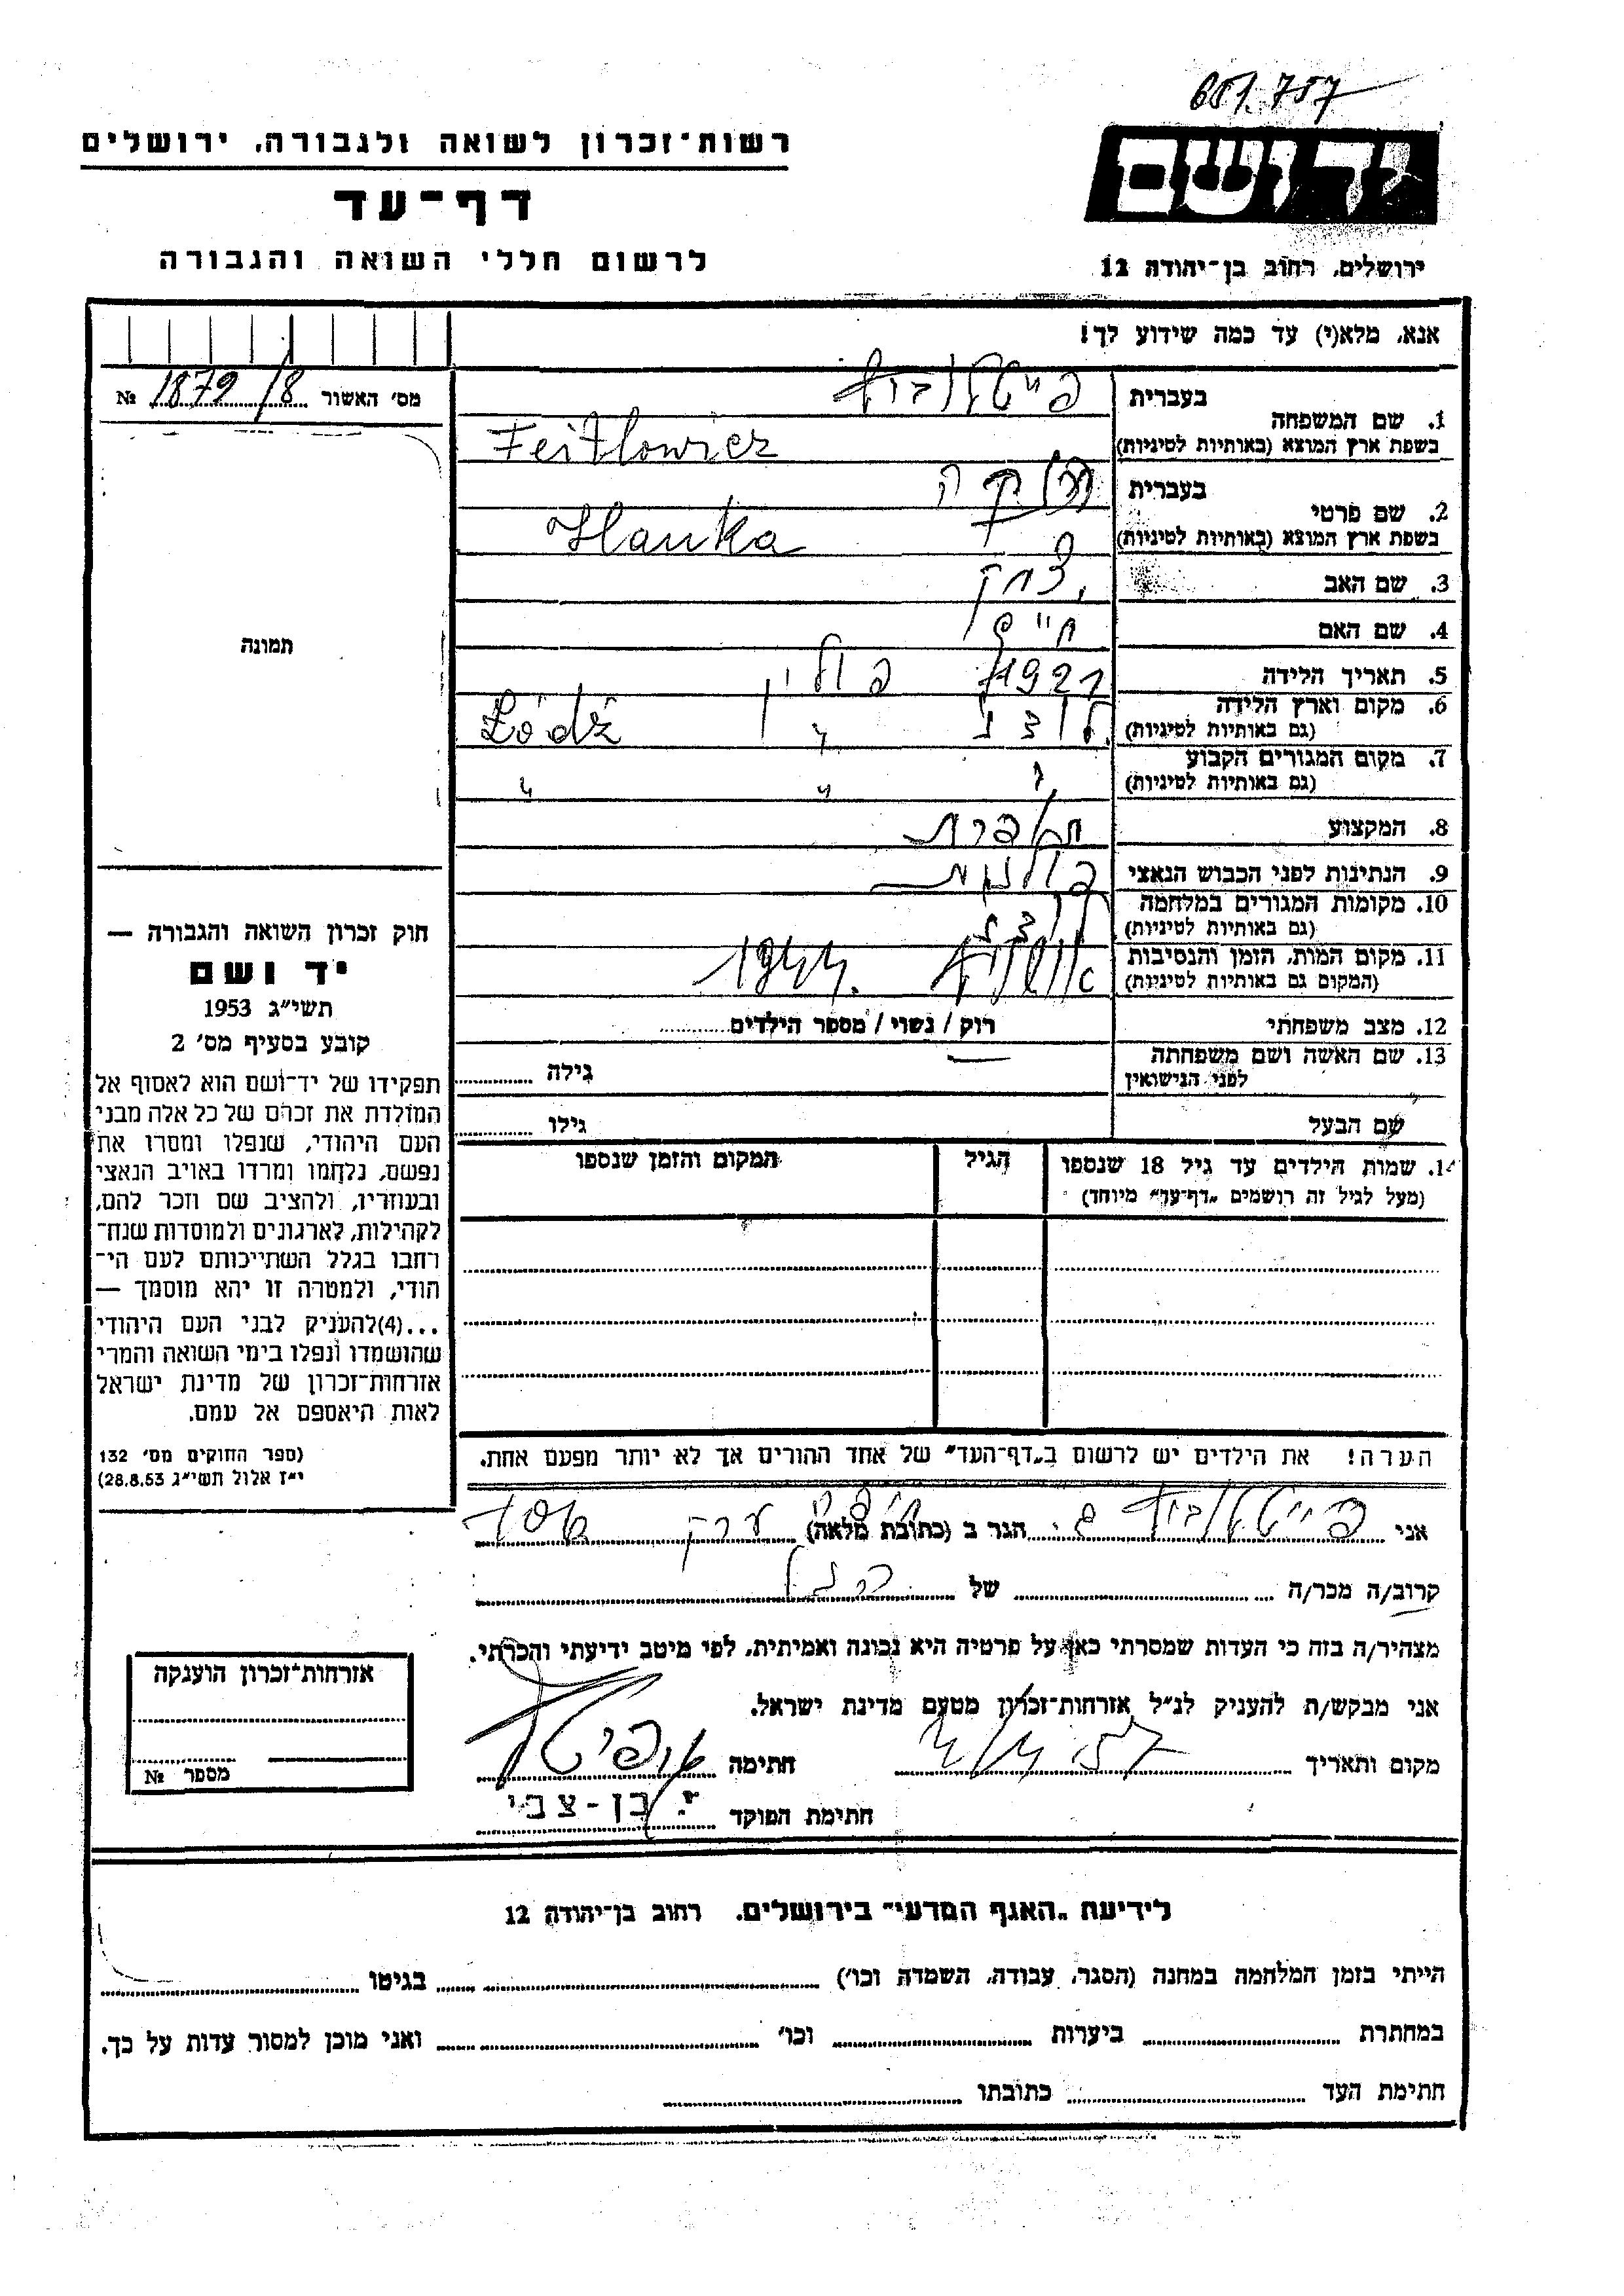 651.757
יד ושם
רשות־זכרון לשואה ולגבורה, ירושלים
דף־עד
לרשום חללי השואה והגבורה
ירושלים, רחוב בן־יהודה 12
אנא, מלא(י) עד כמה שידוע לך!
מס׳ האשור 1879/8 №
תמונה
1. שם המשפחה
בעברית פייטלוביץ
בשפת ארץ המוצא (באותיות לטיניות) Feitlowicz
2. שם פרטי
בעברית
בשפת ארץ המוצא (באותיות לטיניות) Hanka
3. שם האב יצחק
4. שם האם
5. תאריך הלידה 1921
6. מקום וארץ הלידה
(גם באותיות לטיניות) לודז׳ פולין Łódź
7. מקום המגורים הקבוע
(גם באותיות לטיניות) " " "
8. המקצוע תופרת
9. הנתינות לפני הכבוש הנאצי פולנית
10. מקומות המגורים במלחמה
(גם באותיות לטיניות)
11. מקום המות, הזמן והנסיבות
(המקום גם באותיות לטיניות) אושוויץ 1944.
12. מצב משפחתי רוק / נשוי / מספר הילדים
13. שם האשה ושם משפחתה
לפני הנישואין גילה
שם הבעל גילו
14. שמות הילדים עד גיל 18 שנספו הגיל המקום והזמן שנספו
(מעל לגיל זה רושמים „דף־עד" מיוחד)
הערה! את הילדים יש לרשום ב„דף־העד" של אחד ההורים אך לא יותר מפעם אחת.
חוק זכרון השואה והגבורה —
יד ושם
תשי״ג 1953
קובע בסעיף מס׳ 2
תפקידו של יד־ושם הוא לאסוף אל
המולדת את זכרם של כל אלה מבני
העם היהודי, שנפלו ומסרו את
נפשם, נלחמו ומרדו באויב הנאצי
ובעוזריו, ולהציב שם וזכר להם,
לקהילות, לארגונים ולמוסדות שנח־
רחבו בגלל השתייכותם לעם הי־
הודי, ולמטרה זו יהא מוסמך —
...(4)להעניק לבני העם היהודי
שהושמדו ונפלו בימי השואה והמרי
אזרחות־זכרון של מדינת ישראל
לאות היאספם אל עמם.
(ספר החוקים מס׳ 132
י״ז אלול תשי״ג 28.8.53)
אני פייטלוביץ הגר ב (כתובת מלאה)
קרוב/ה מכר/ה של
מצהיר/ה בזה כי העדות שמסרתי כאן על פרטיה היא נכונה ואמיתית, לפי מיטב ידיעתי והכרתי.
אני מבקש/ת להעניק לנ״ל אזרחות־זכרון מטעם מדינת ישראל.
מקום ותאריך חתימה
חתימת הפוקד י. בן-צבי
אזרחות־זכרון הוענקה
מספר №
לידיעת „האגף המדעי" בירושלים, רחוב בן־יהודה 12
הייתי בזמן המלחמה במחנה (הסגר, עבודה, השמדה וכו׳) בגיטו
במחתרת ביערות וכו׳ ואני מוכן למסור עדות על כך.
חתימת העד כתובתו